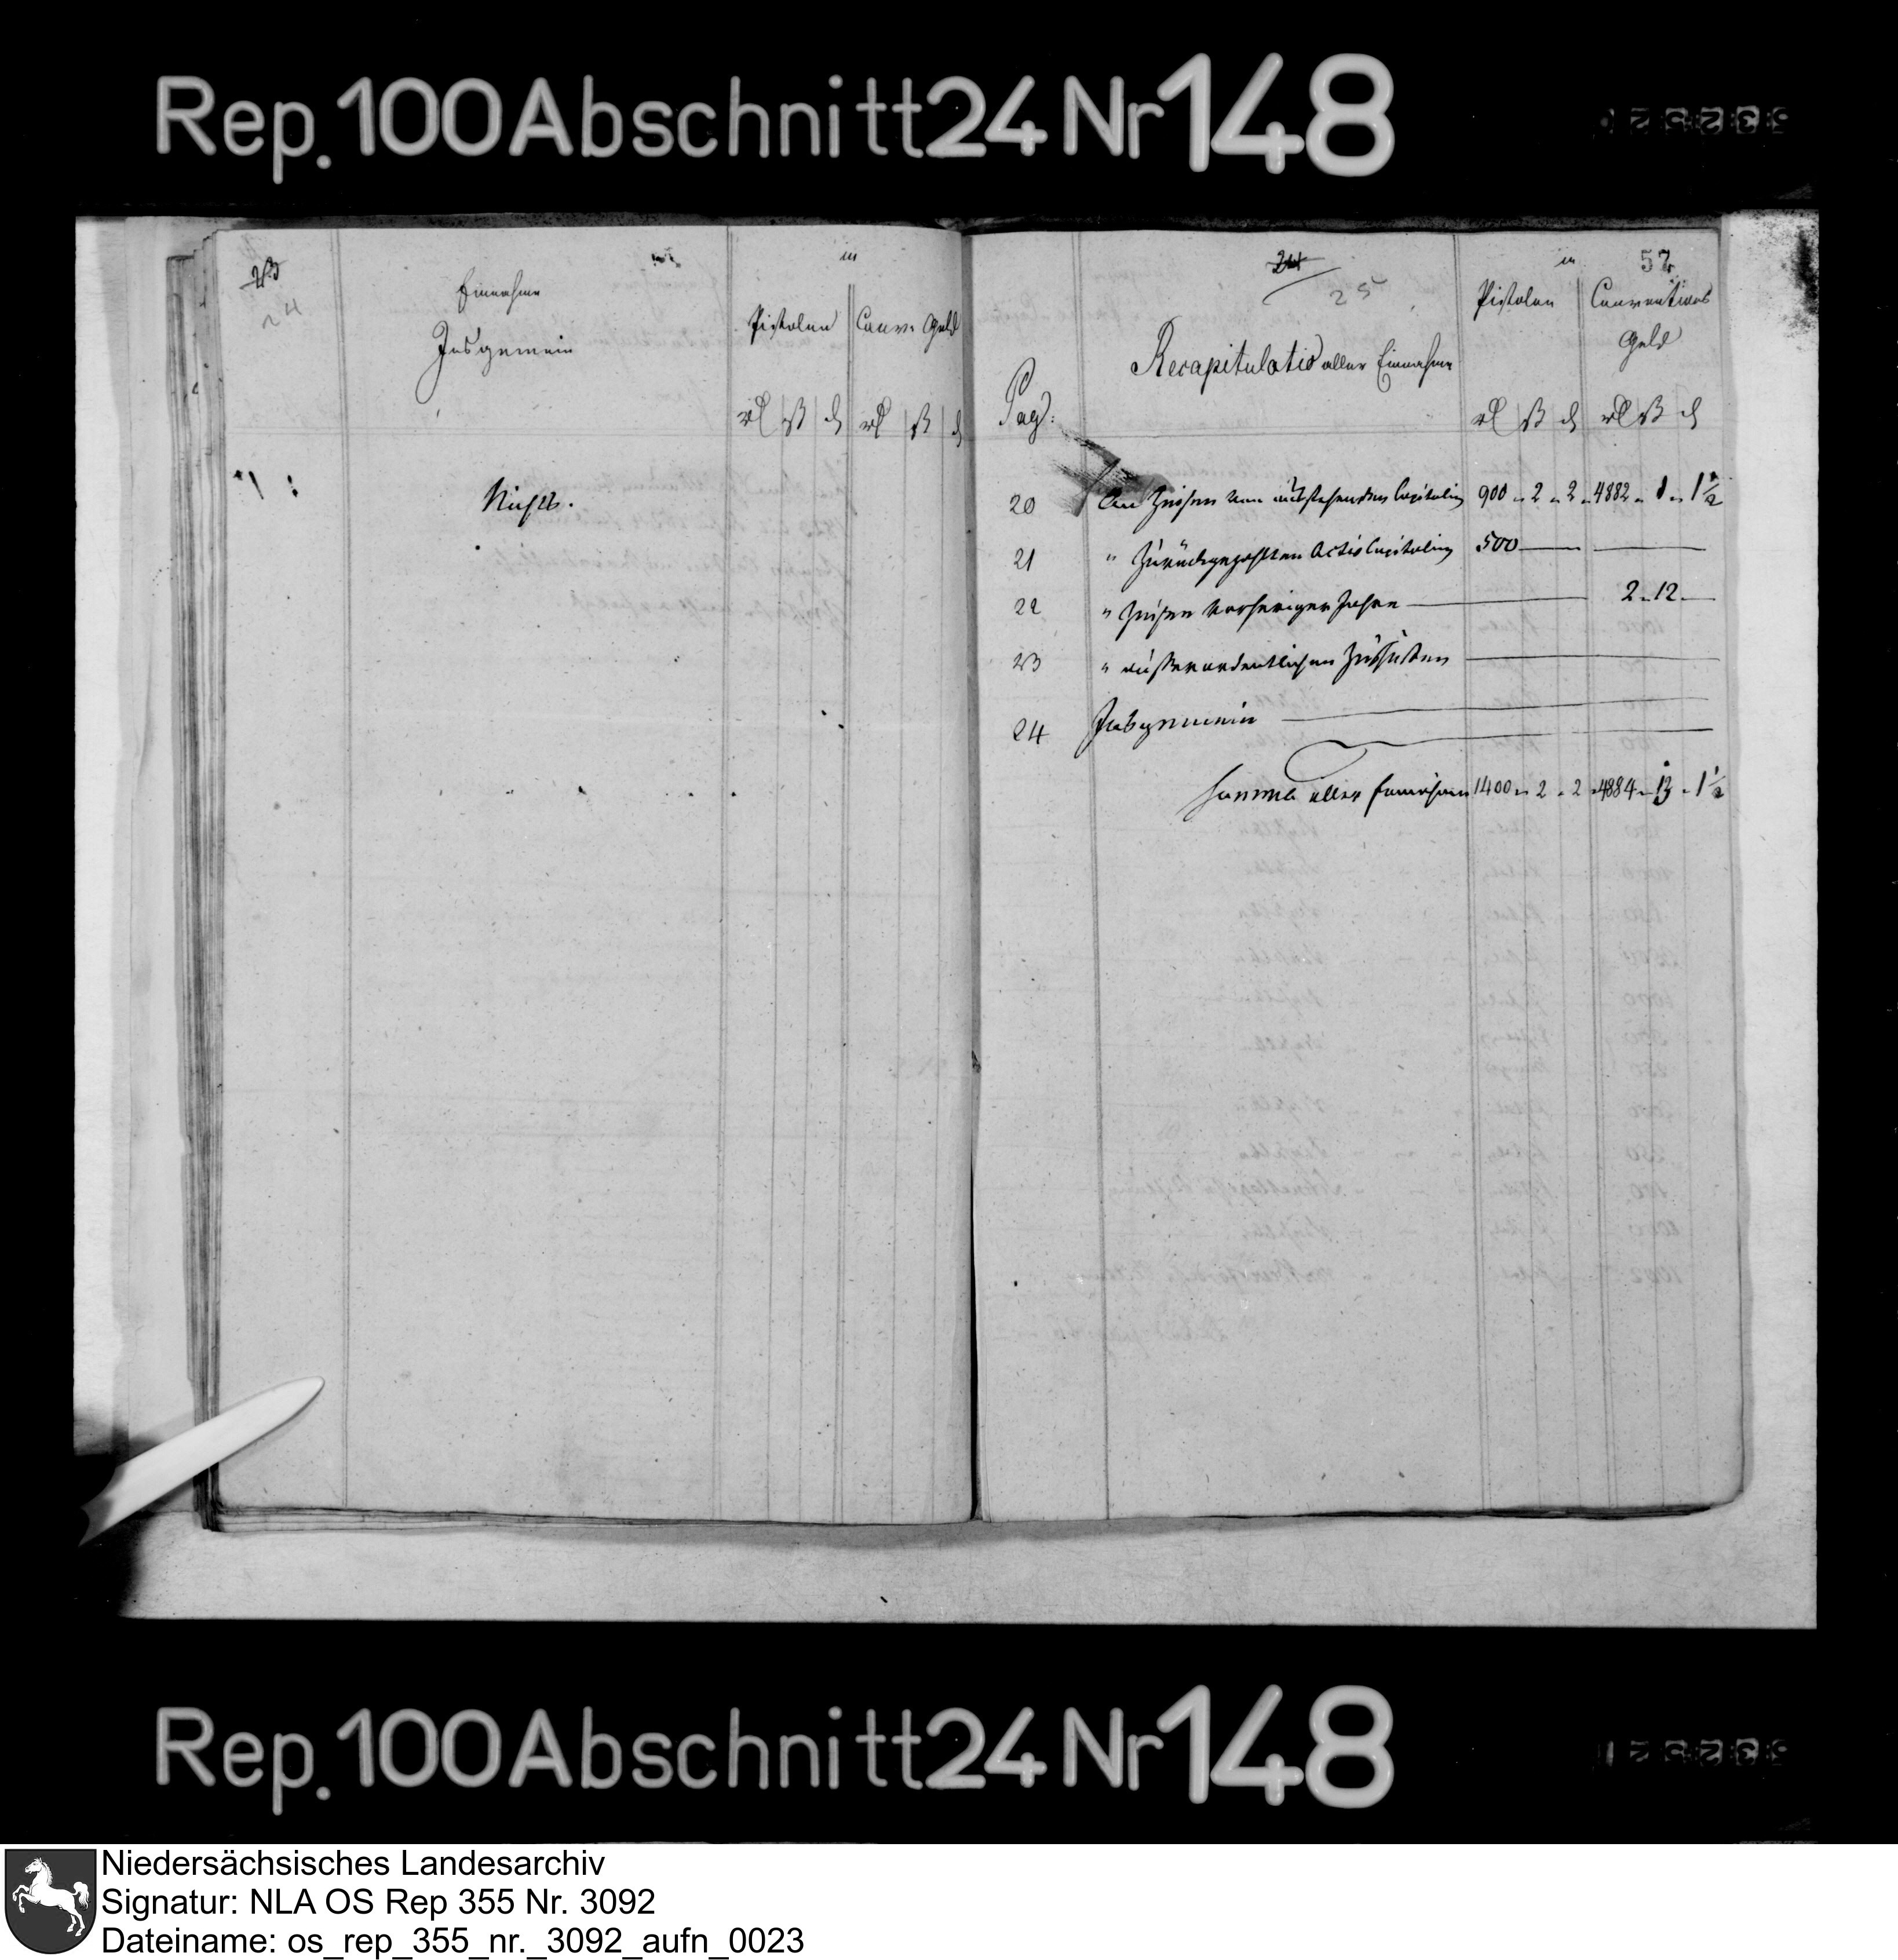 Rep. 100 Abschnitt 24 Nr 148
23
24
Einnahme
Insgemein
in
Pistolen Conv. Geld
rl ß d rl ß d
Nichts.
24
25
57
in
Pistolen Conventions
Geld
Recapitulatio aller Einnahme
Pag:
rl ß d rl ß d
20 An Zinsen von ausstehenden Capitalien 900 " 2 " 2 " 4882 " 1 " 1 1/2
21 " Zurückgezahlten Activ Capitalien 500
22 " Zinsen voriger Jahre 2 " 12
23 " außerordentlichen Zuschüssen
24 Insgemein
Summa aller Einnahmen 1400 " 2 " 2 " 4884 " 13 " 1 1/2
Rep. 100 Abschnitt 24 Nr 148
Niedersächsisches Landesarchiv
Signatur: NLA OS Rep 355 Nr. 3092
Dateiname: os_rep_355_nr._3092_aufn_0023